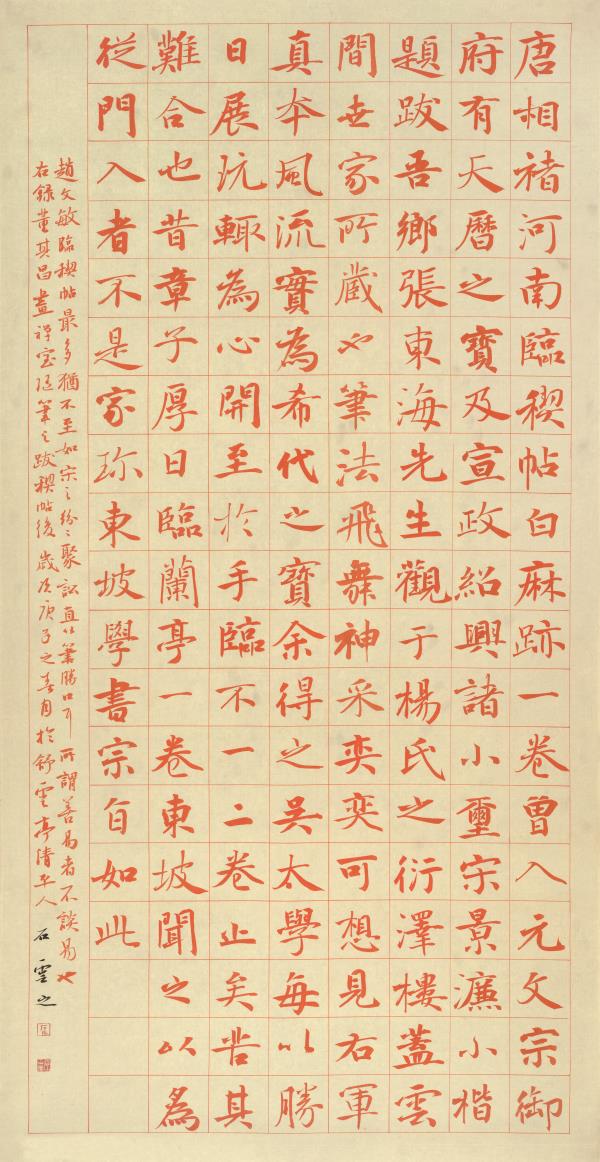 唐相褚河南臨稧帖白麻跡一卷曾入元文宗御
府有天曆之寶及宣政紹興諸小璽宋景濂小楷
題跋吾鄉張東海先生觀于楊氏之衍澤樓蓋雲
間世家所藏也筆法飛舞神采奕奕可想見右軍
真本風流實為希代之寶余得之吳太學每以勝
日展玩輙為心開至於手臨不一二卷止矣苦其
難合也昔章子厚日臨蘭亭一卷東坡聞之以為
從門入者不是家珍東坡學書宗旨如此
趙文敏臨稧帖最多猶不至如宋之紛〻聚訟直以筆勝口耳所謂善易者不談易也
右錄董其昌畫禪室隨筆之跋稧帖後歲次庚子之春月於舒雲亭清平人石雲之